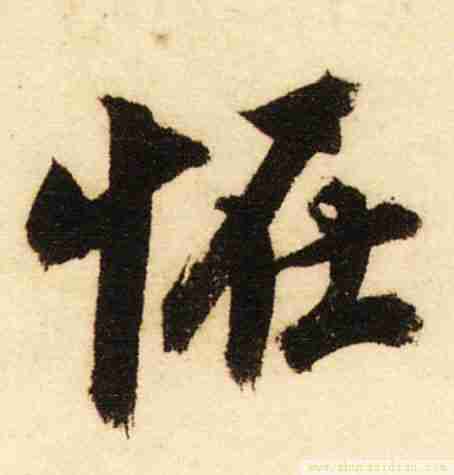 恠
www.shufazidian.com